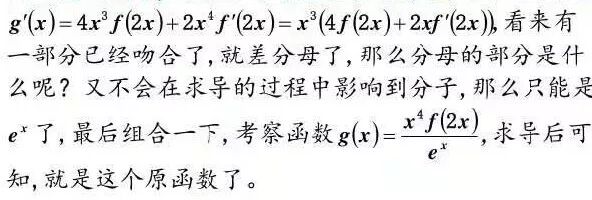 g′(x)=4x³f(2x)+2x⁴f′(2x)=x³(4f(2x)+2xf′(2x)), 看来有
一部分已经吻合了,就差分母了,那么分母的部分是什
么呢？又不会在求导的过程中影响到分子,那么只能是
eˣ 了,最后组合一下,考察函数g(x)=x⁴f(2x)/eˣ,求导后可
知,就是这个原函数了。